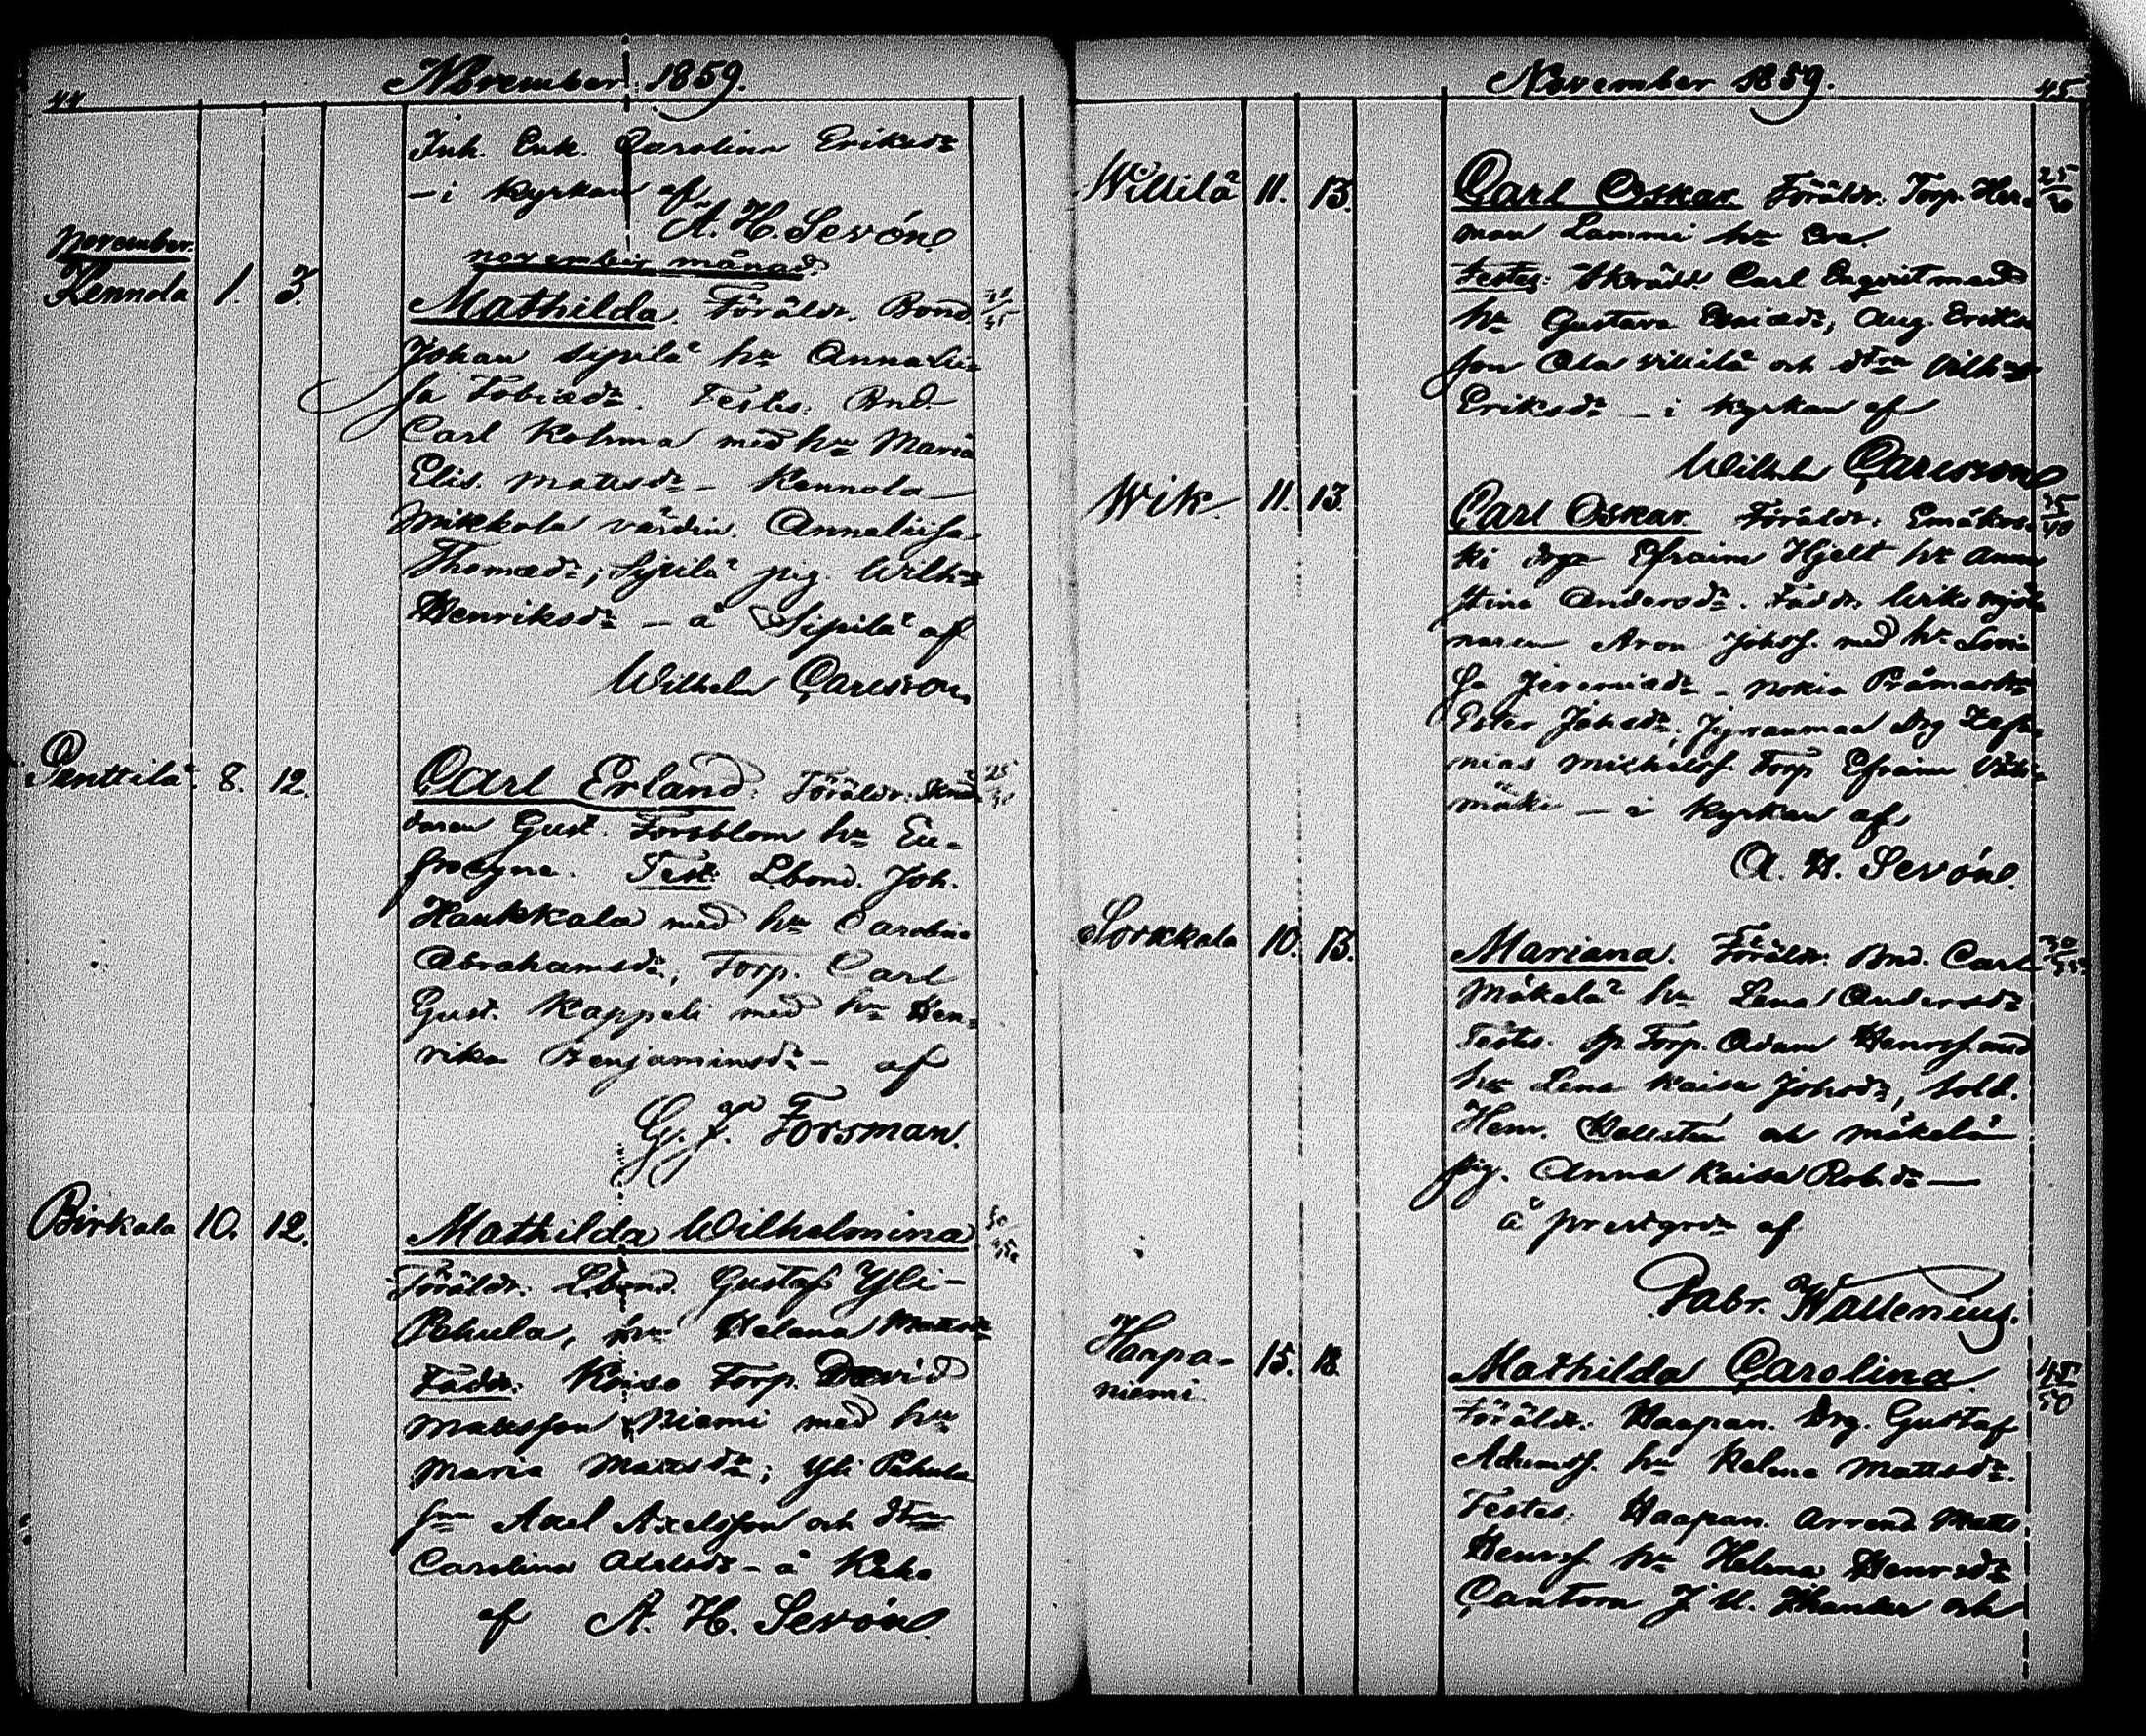 44
November 1859.
Inh. Enk. Carolina Eriksdr
— i kyrkan af
A. H. Sevón
november
november månad.
Kennola 1. 3. Mathilda. Föräldr. Bond.
Johan Sipilä hu Annalii-
sa Tobiædr. Testes: Bnd.
Carl Kohma med hu Maria
Elis. Mattsdr – Kennola
Mikkola värdin. Annaliisa
Thomædr; Sipilä pig. Wilhna
Henriksdr — å Sipilä af
Wilhelm Carlsson.
Penttilä 8. 12. Carl Erland. Föräldr: Skräd-
daren Gust. Forsblom hu Eu-
frosyne. Test: Lbond. Joh.
Haukkala med hu Carolina
Abrahamsdr, Torp. Carl
Gust. Kappeli med hu Hen-
rika Benjaminsdr – af
G. F. Forsman.
Birkala 10. 12. Mathilda Wilhelmina
Föräldr. Lbond. Gustaf Yli-
Pehula, hu Helena Mattsdr
Faddr: Torp. David
Mattsson Niemi med hu
Maria Mattsdr; Yli Pehula
Axel Axelsson och dtrn
Carolina – å
af A. H. Sevón
November 1859.
45
Willilä 11. 13. Carl Oskar Föräldr: Torp. Her- 25
man Lammi hu Eva.
Testes: Skrädd. Carl Enqvist med
hu Gustava, Aug. Eriks-
son Ala Willilä och dtrn Wilhna
Eriksdr — i kyrkan af
Wilhelm Carlsson
Wik 11. 13. Carl Oskar Föräldr: Emäkos- 35/40
ki Efraim Hjelt hu Anna
Stina Andersdr. Faddr. Wiks mjöl-
naren Aron Johss. med hu Lovi-
sa Jeremiædr – Nokia
Ester Johsdr; drg Zefa-
nias Michelss. Torp Efraim
mäki — i kyrkan af
A. H. Sevón.
Sorkkala 10. 13. Mariana. Föräldr: Bnd. Carl 30/35
Mäkelä hu Lena Andersdr
Testes. Torp. Adam Henrss. med
hu Lena Kaisa Johsdr, sold.
Henr. Hellsten och Mäkelä
pig. Anna Kaisa Robdr —
å prestgrdn af
Fabr. Wallenius.
Haapa- 15. 18. Mathilda Carolina. 45/50
niemi
Föräldr. Haapan. Drg. Gustaf
Adamss. hu Helena Mattsdr.
Testes: Haapan. Arrend. Matts
Henrss. hu Helena Henrsdr
Cantorn J. U. och